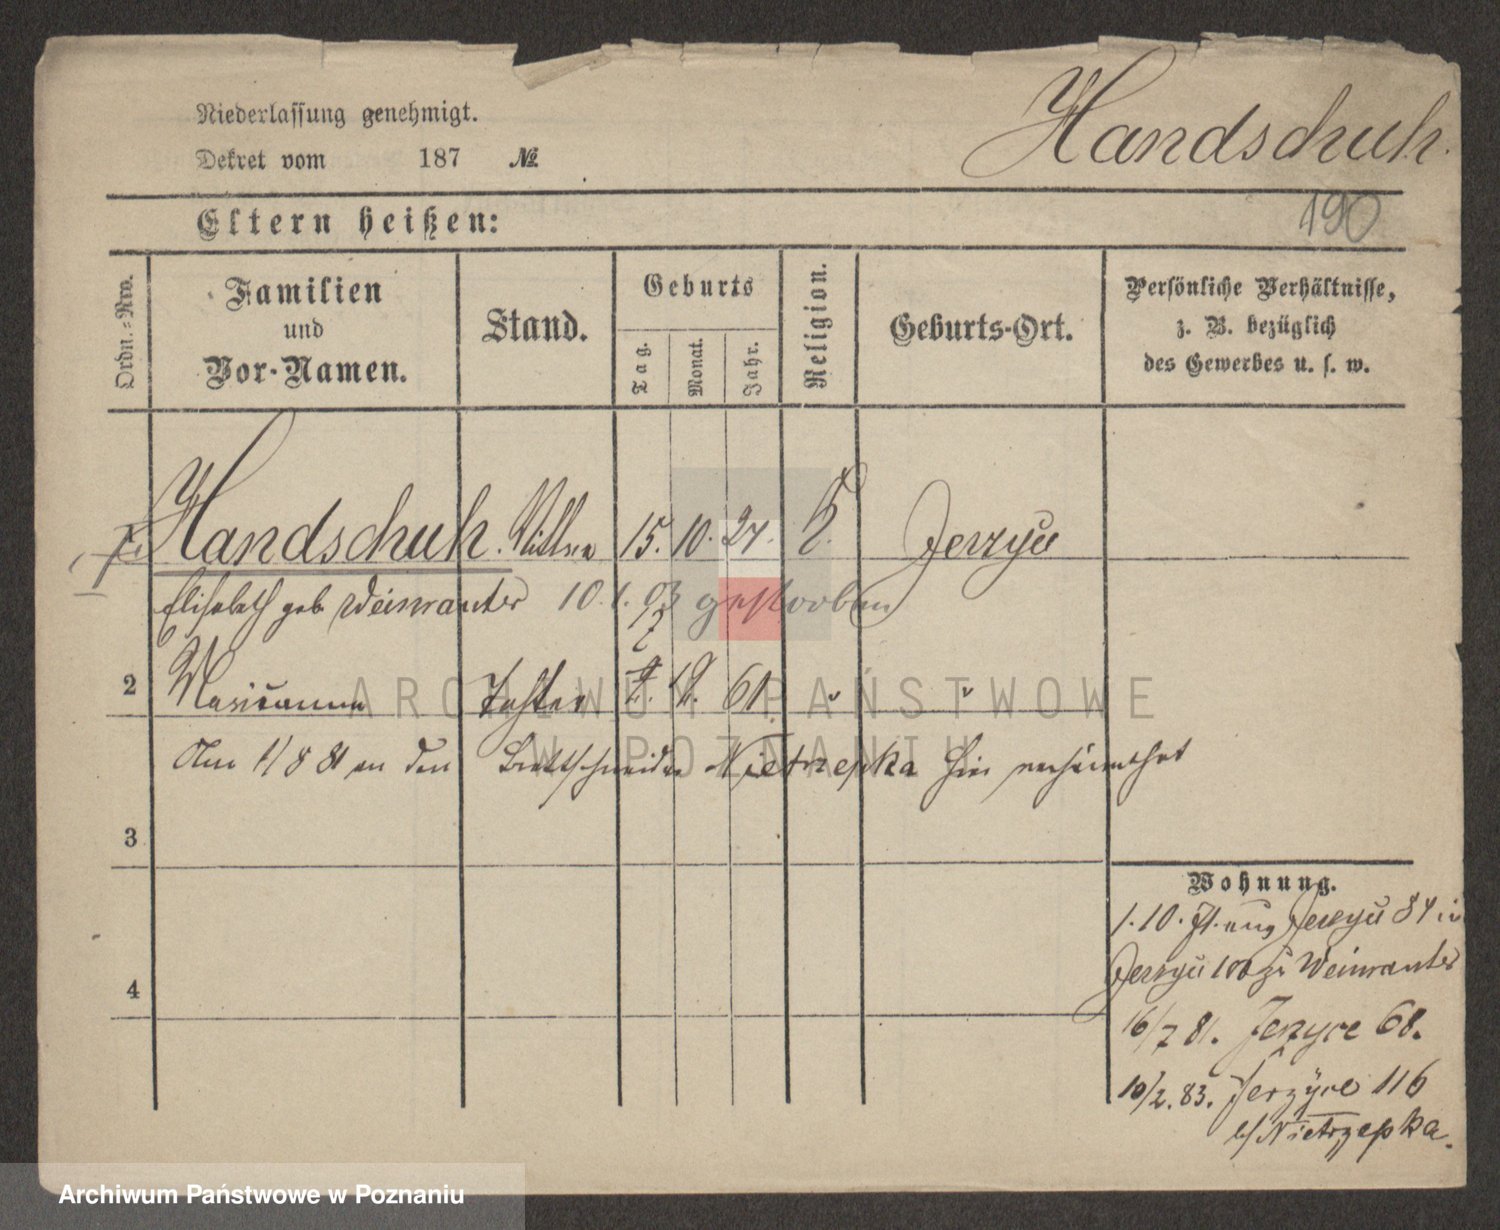 Niederlassung genehmigt.
Dekret vom 187 №
Handschuh.
190
Eltern heißen:
Ordn.=Nro.
Familien
und
Vor-Namen.
Stand.
Geburts
Tag.
Monat.
Jahr.
Religion.
Geburts-Ort.
Persönliche Verhältnisse,
z. B. bezüglich
des Gewerbes u. s. w.
Handschuh. 15. 10. 27. Jerzyce
Elisabeth geb Weinranter 10. 1. 03 gestorben
2 Marianna Tochter 12. 61
ARCHIWUM PAŃSTWOWE
W POZNANIU
Am 1/8 81 an den Brettschneider Nietrzepka hier verheirathet
3
4
Wohnung.
1. 10. aus Jerzyce 84 in
Jerzyce 100 zu Weinranter
16/7 81. Jerzyce 68.
10/2. 83. Jerzyce 116
b/ Nietrzepka.
Archiwum Państwowe w Poznaniu